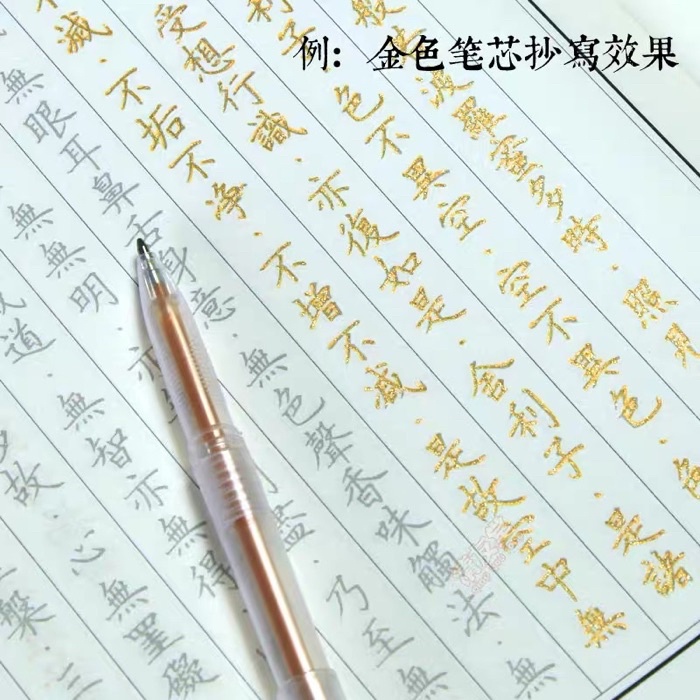 例：金色笔芯抄寫效果
波羅蜜多時·照見
利子·色不異空·空不異色·色
受想行識·亦復如是·舍利子·是諸
減·不垢不净·不增不減·是故空中無
無眼耳鼻舌身意·無色聲香味觸法·無
無無明·亦 盡·乃至無
道·無智亦無得
故·心無罣礙
槃·三